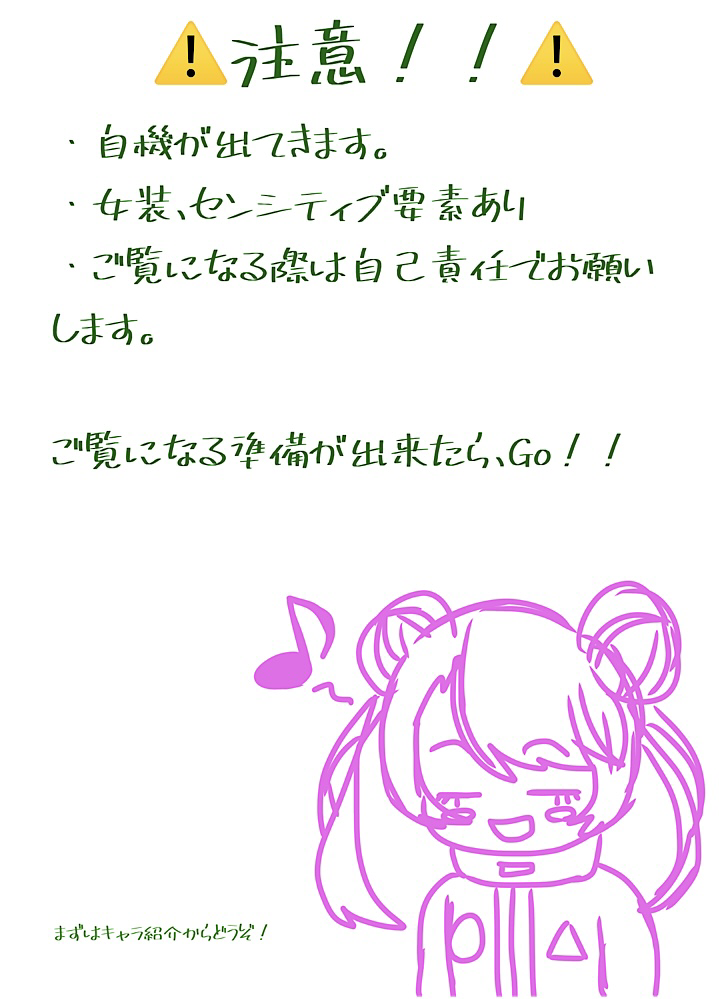 ⚠️注意！！⚠️
・自機が出てきます。
・女装、センシティブ要素あり
・ご覧になる際は自己責任でお願い
します。
ご覧になる準備が出来たら、Go！！
P △
まずはキャラ紹介からどうぞ！